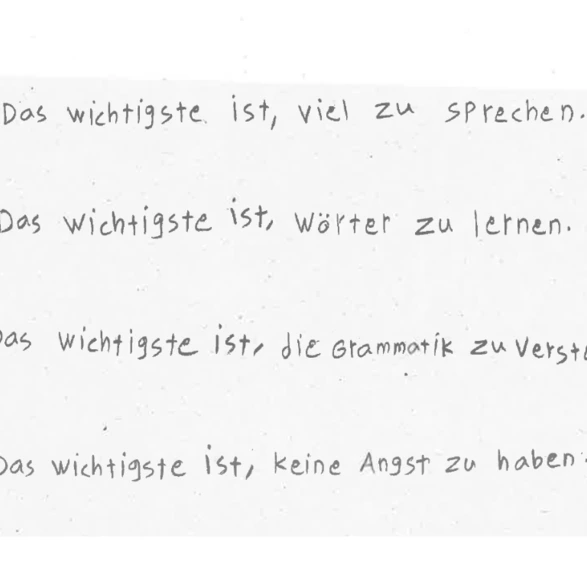 Das wichtigste ist, viel zu sprechen.
Das wichtigste ist, Wörter zu lernen.
Das wichtigste ist, die Grammatik zu
Das wichtigste ist, keine Angst zu haben.